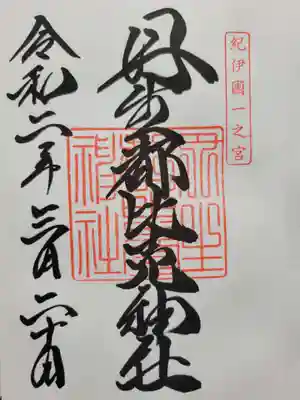 紀伊國一之宮
丹生都比売神社
丹生
神社
令和六年三月二十日